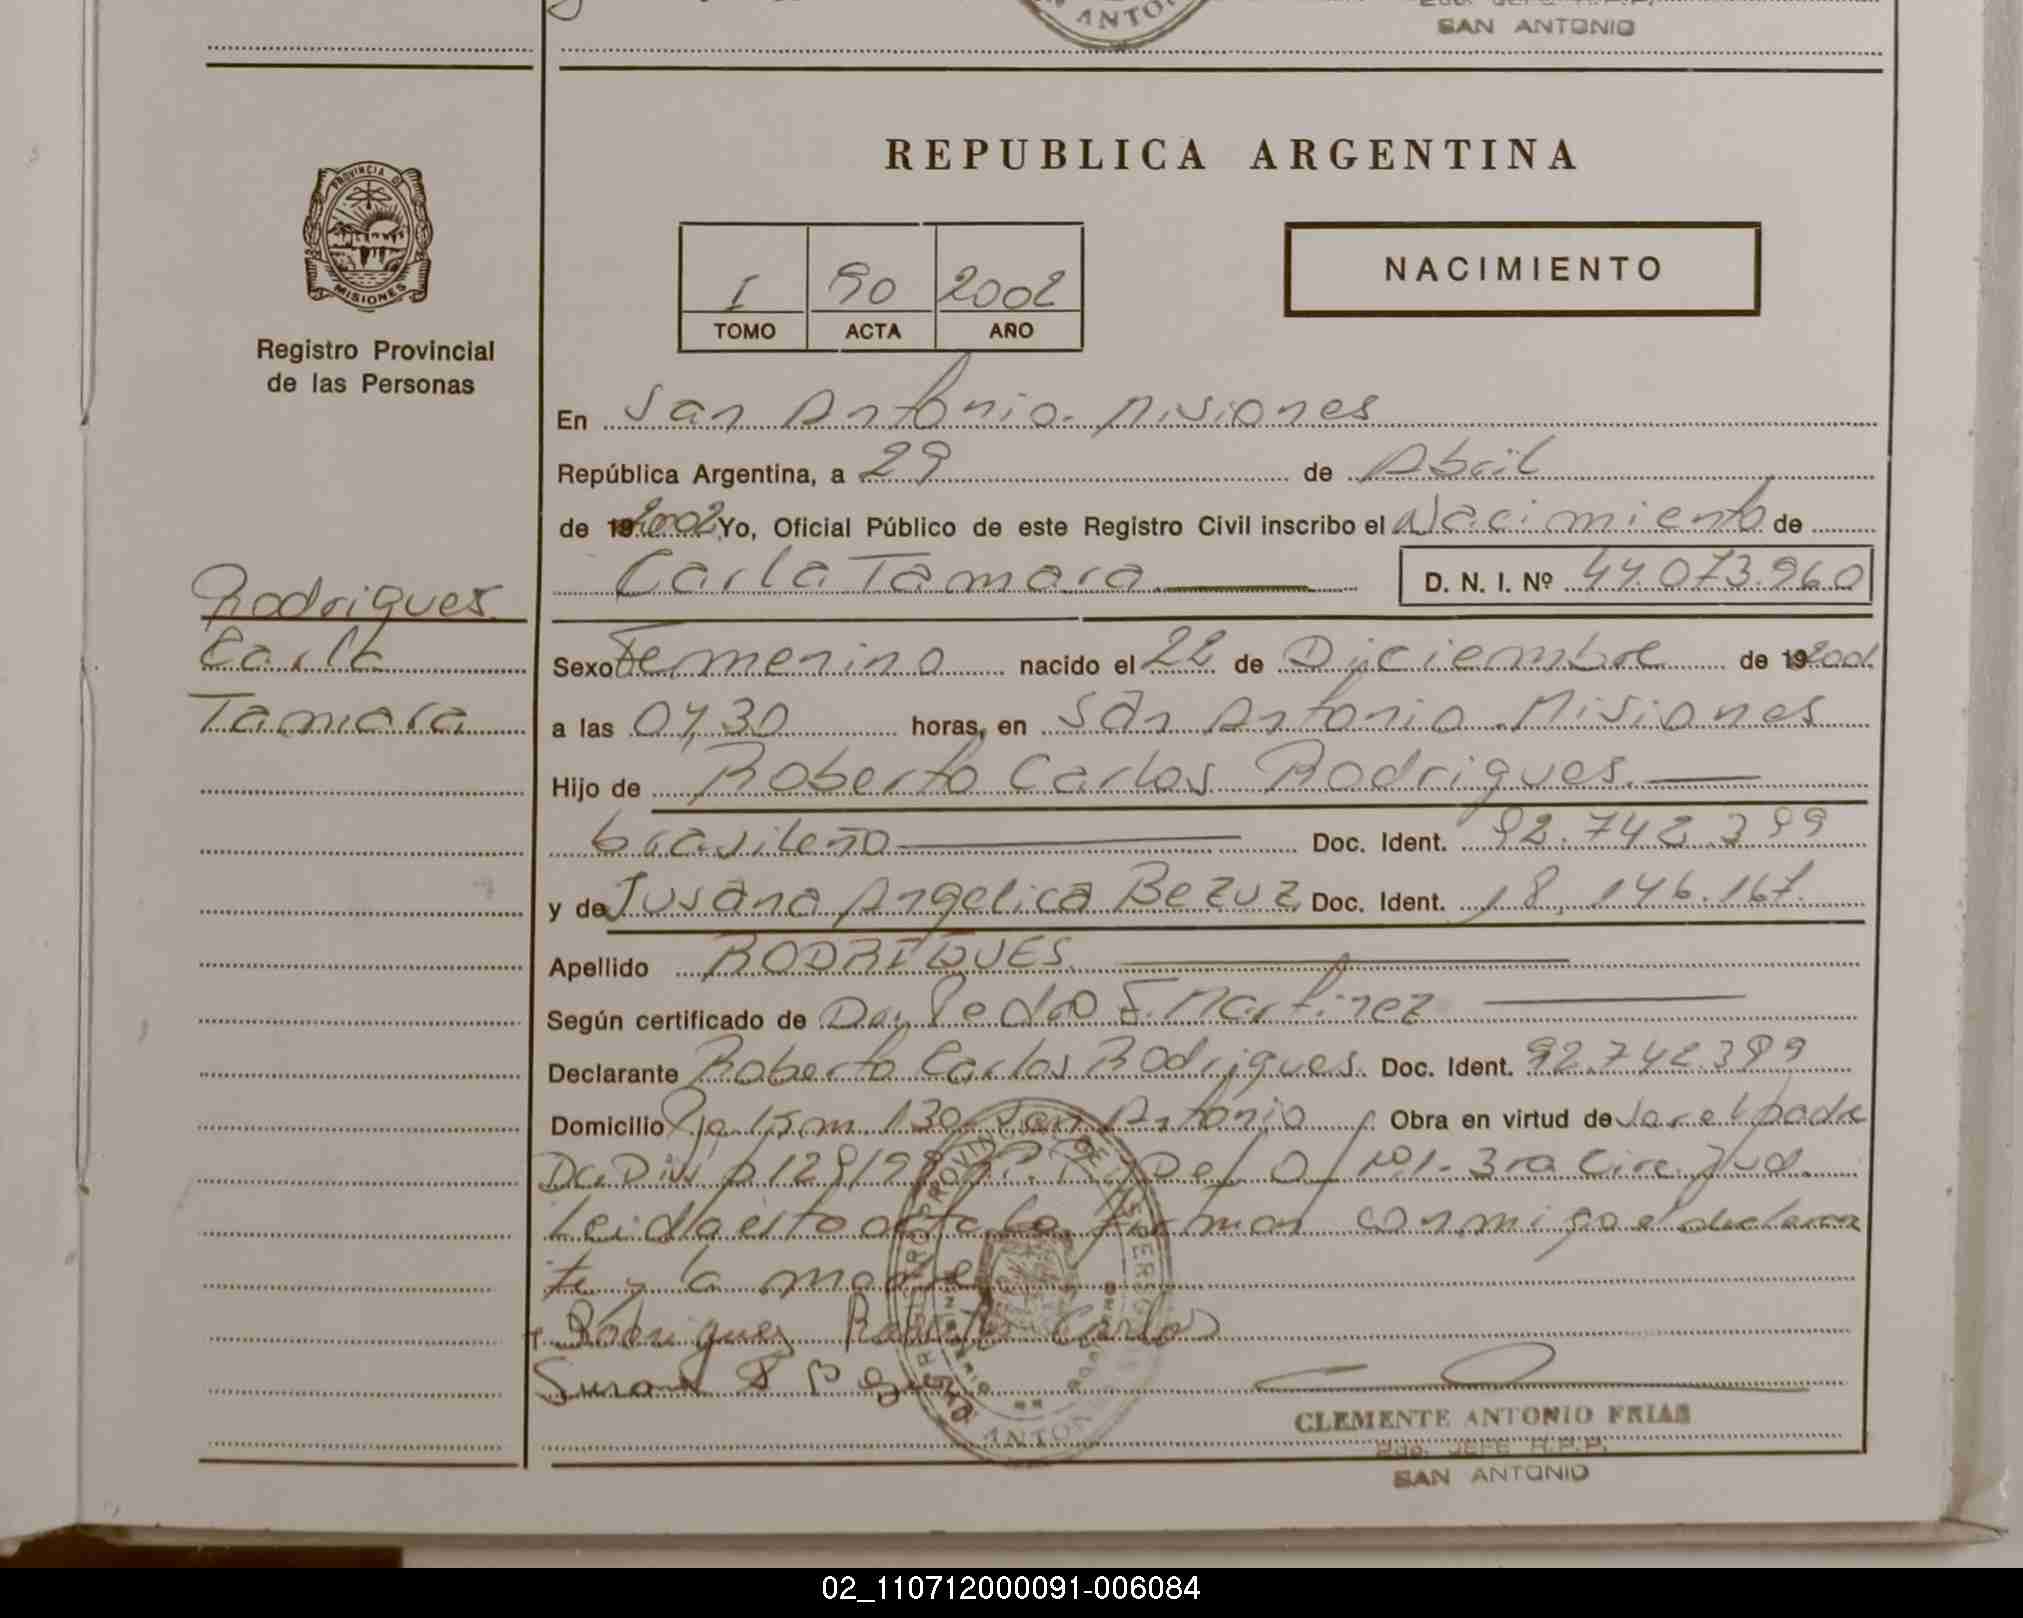 SAN ANTONIO
PROVINCIA DE
MISIONES
Registro Provincial
de las Personas
REPUBLICA ARGENTINA
NACIMIENTO
I 90 2002
TOMO ACTA AÑO
En San Antonio - Misiones
República Argentina, a 29 de Abril
de 19 2002 Yo, Oficial Público de este Registro Civil inscribo el Nacimiento de
Carla Tamara D. N. I. Nº 44.073.960
Rodrigues
Carla
Tamara
Sexo Femenino nacido el 22 de Diciembre de 19 2001
a las 04,30 horas, en San Antonio - Misiones
Hijo de Roberto Carlos Rodrigues
brasileño Doc. Ident. 92.742.399
y de Susana Angelica Bezuz Doc. Ident. 18.146.167
Apellido RODRIGUES
Según certificado de Dr. Pedro E. Martinez
Declarante Roberto Carlos Rodrigues Doc. Ident. 92.742.399
Domicilio 130 San Antonio Obra en virtud de ser el padre
3ra Circ. Jud.
Leida esta acta la firman conmigo el declaran
te y la madre
Rodrigues Roberto Carlos
Susana
CLEMENTE ANTONIO FRIAS
JEFE R.P.P.
SAN ANTONIO
02_110712000091-006084